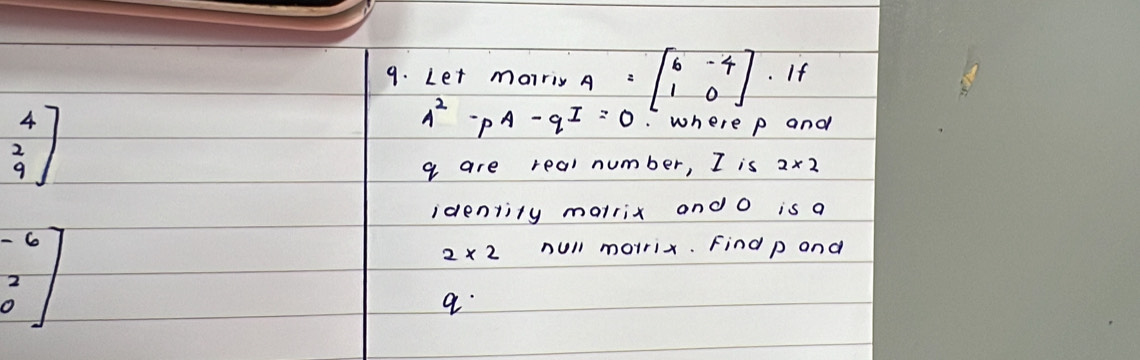 4
2
9
-6
2
0
9. Let matrix A = [6 -4
1 0]. If
A² -pA - qI = 0. where p and
q are real number, I is 2×2
identity matrix and 0 is a
2×2 null matrix. Find p and
q.